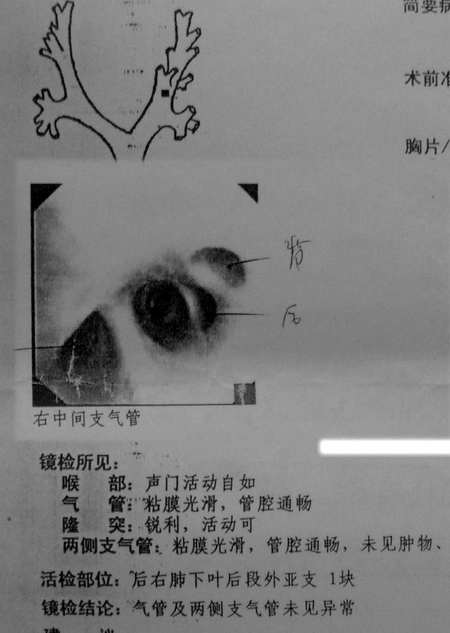 简要病
术前准
胸片/
后
右中间支气管
镜检所见:
喉 部: 声门活动自如
气 管: 粘膜光滑, 管腔通畅
隆 突: 锐利, 活动可
两侧支气管: 粘膜光滑, 管腔通畅, 未见肿物、
活检部位: 后右肺下叶后段外亚支 1块
镜检结论: 气管及两侧支气管未见异常